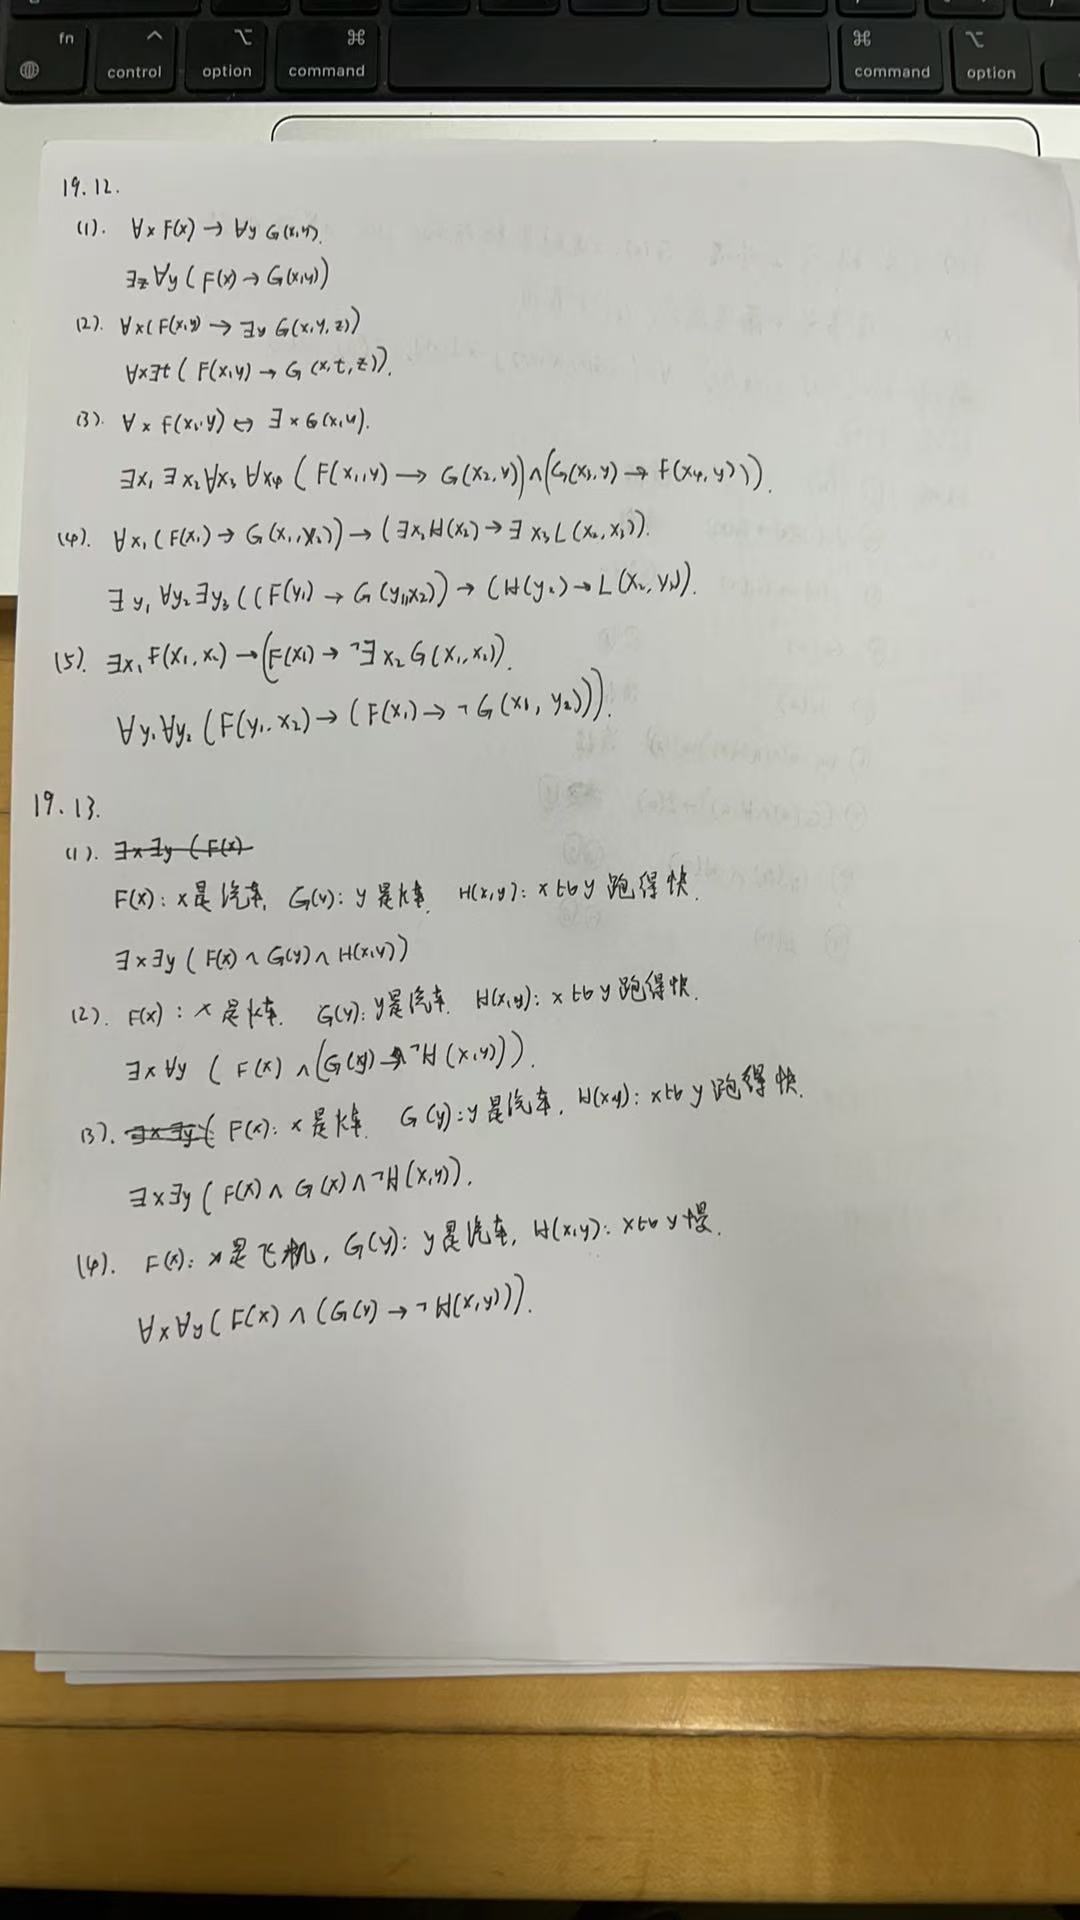 fn
control
option
command
command
option
19.12.
(1). ∀x F(x) → ∀y G(x,y).
∃z ∀y ( F(x) → G(x,y))
(2). ∀x(F(x,y) → ∃y G(x,y,z))
∀x∃t ( F(x,y) → G(x,t,z)).
(3). ∀x F(x,y) ↔ ∃x G(x,y).
∃x₁ ∃x₂ ∀x₃ ∀x₄ ( F(x₁,y) → G(x₂,y))∧(G(x₃,y) → F(x₄,y))).
(4). ∀x₁(F(x₁) → G(x₁,x₂)) → (∃x₂H(x₂) → ∃x₃L(x₂,x₃)).
∃y₁ ∀y₂ ∃y₃ ((F(y₁) → G(y₁,x₂)) → (H(y₂) → L(x₂,y₃)).
(5). ∃x₁ F(x₁,x₂) → (F(x₁) → ¬∃x₂ G(x₁,x₂)).
∀y₁ ∀y₂ (F(y₁,x₂) → (F(x₁) → ¬G(x₁,y₂))).
19.13.
(1). ∃x∃y (F(x)
F(x): x是汽车, G(y): y是火车. H(x,y): x比y跑得快.
∃x∃y ( F(x) ∧ G(y) ∧ H(x,y))
(2). F(x): x是火车. G(y): y是汽车. H(x,y): x比y跑得快.
∃x∀y ( F(x) ∧ (G(y) → ¬H(x,y))).
(3). ∃x∃y( F(x): x是火车. G(y): y是汽车, H(x,y): x比y跑得快.
∃x∃y ( F(x) ∧ G(x) ∧ ¬H(x,y)).
(4). F(x): x是飞机, G(y): y是汽车, H(x,y): x比y慢.
∀x∀y( F(x) ∧ (G(y) → ¬H(x,y))).